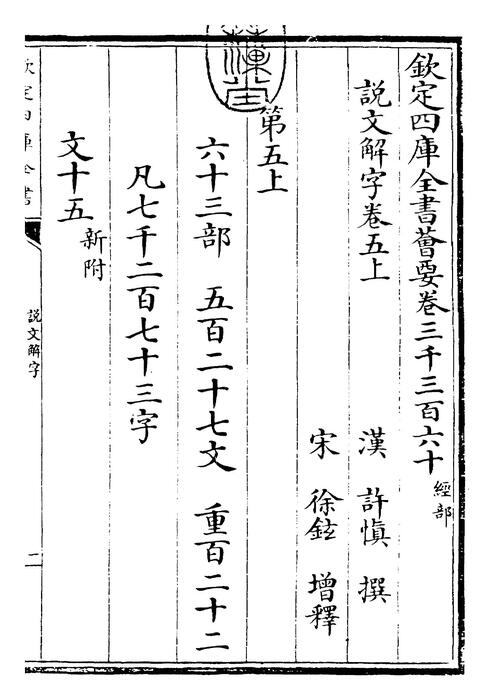 欽定四庫全書薈要卷三千三百六十 經部
說文解字卷五上
漢 許慎 撰
宋 徐鉉 增釋
第五上
六十三部 五百二十七文 重百二十二
凡七千二百七十三字
文十五 新附
欽定四庫全書
說文解字
二